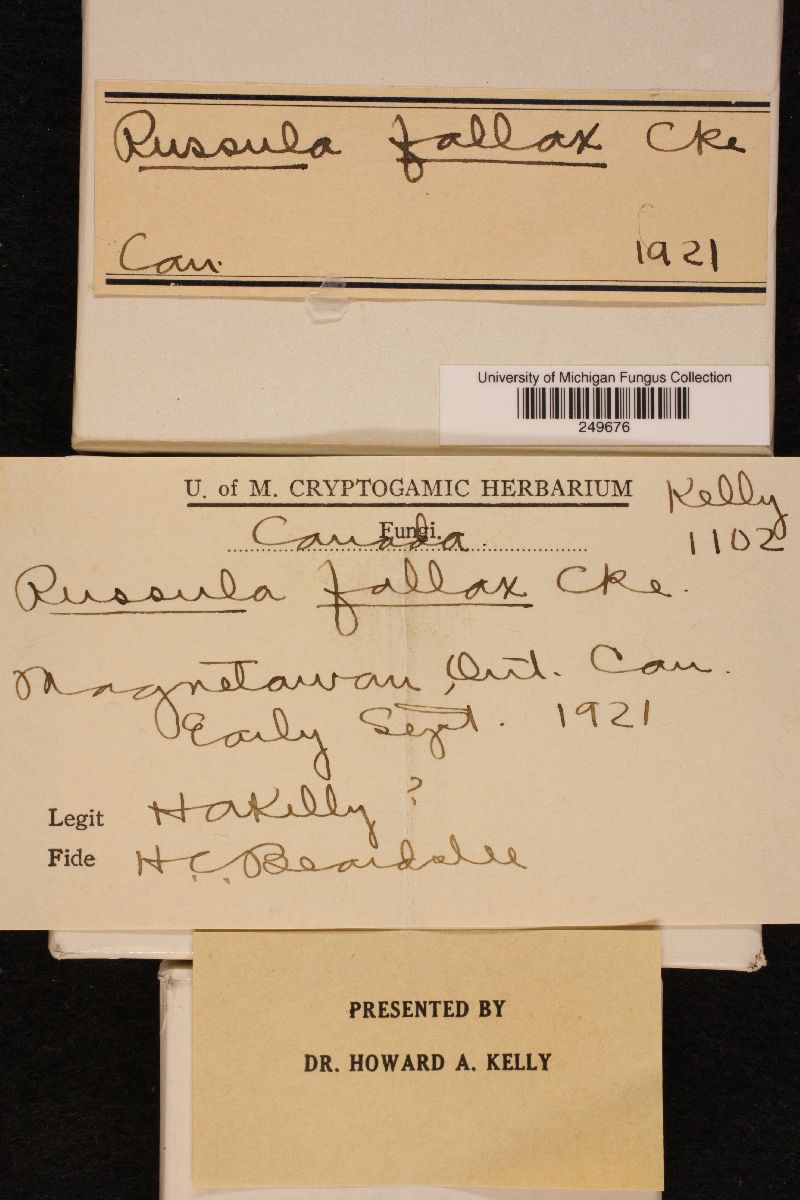 Russula fallax Cke
Can. 1921
University of Michigan Fungus Collection
249676
U. of M. CRYPTOGAMIC HERBARIUM
Kelly
1102
Fungi.
Canada
Russula fallax Cke.
Magnetawan, Ont. Can.
Early Sept. 1921
Legit HAKelly ?
Fide H.C. Beardslee
PRESENTED BY
DR. HOWARD A. KELLY